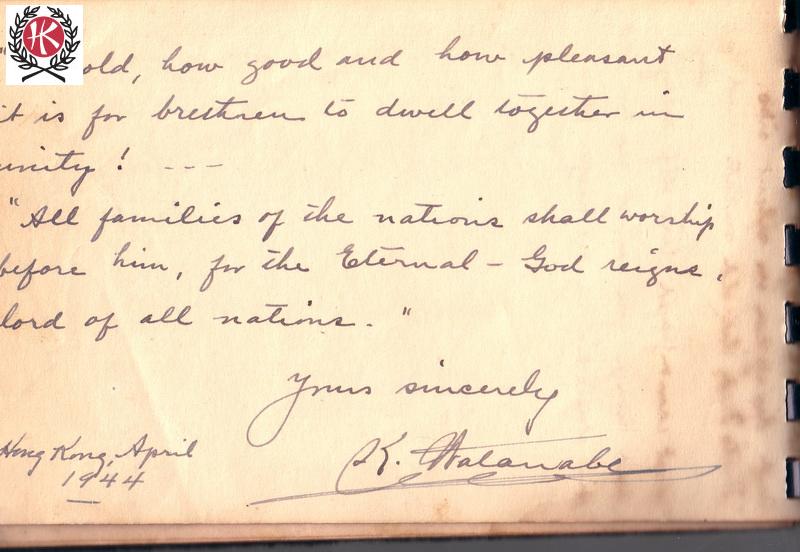 HK
"
old, how good and how pleasant
it is for brethren to dwell together in
unity! ---
"All families of the nations shall worship
before him, for the Eternal - God reigns,
lord of all nations."
Yours sincerely
K. Watanabe
Hong Kong, April
1944